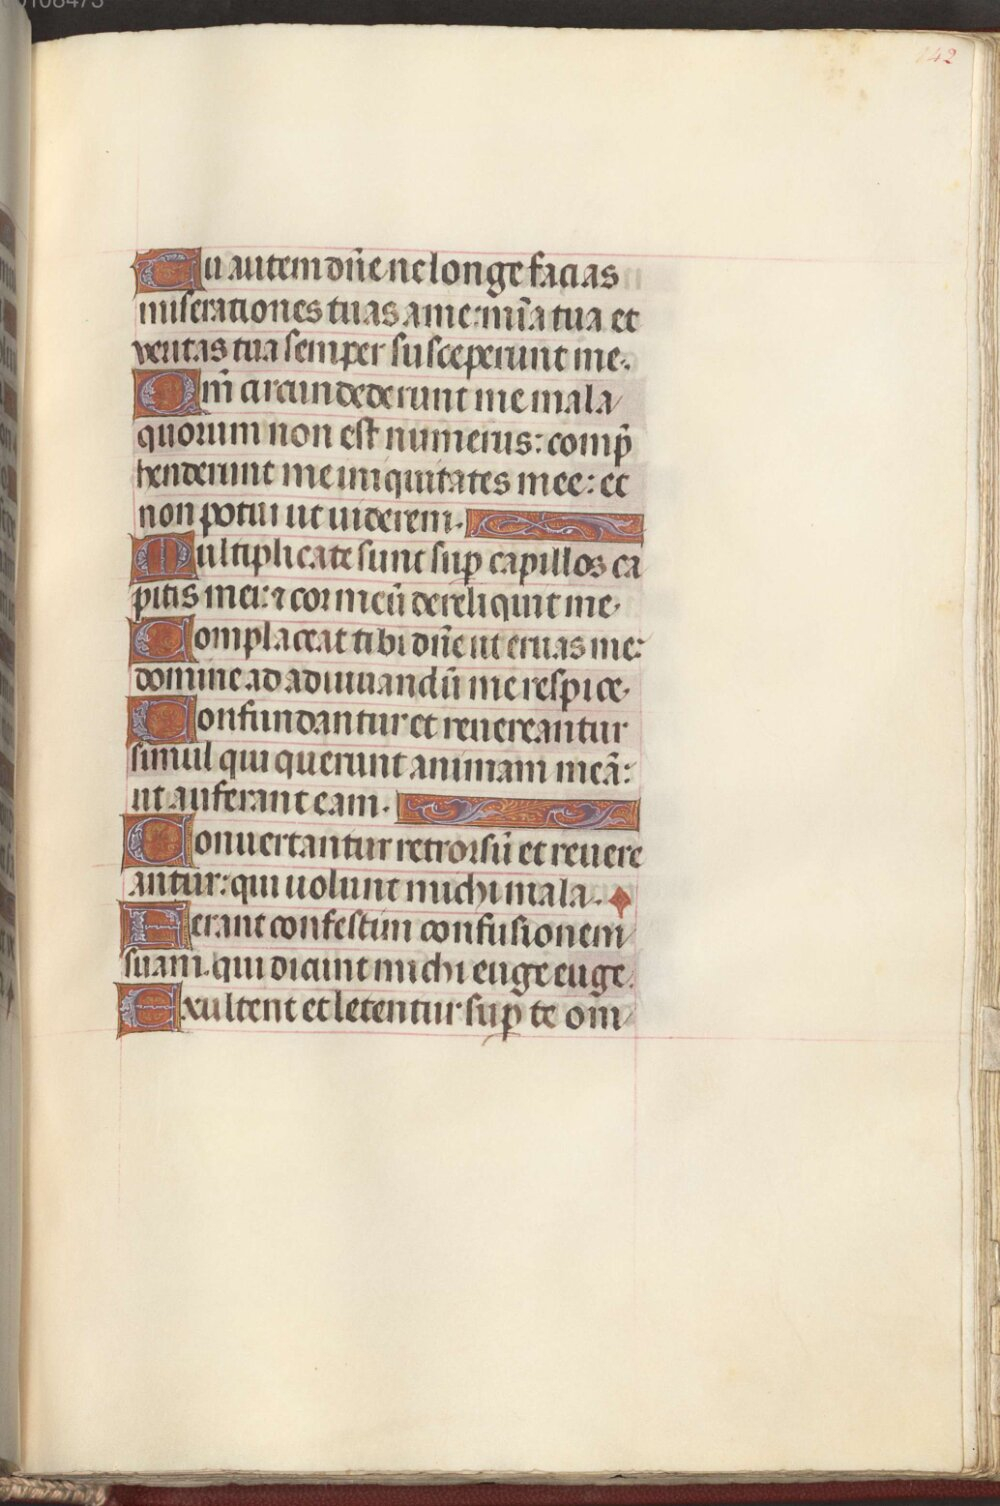 142
Tu autem dñe ne longe facias
miserationes tuas a me: mĩa tua et
veritas tua semper susceperunt me.
Qm̃ circundederunt me mala
quorum non est numerus: comp̃
henderunt me iniquitates mee: et
non potui ut uiderem.
Multiplicate sunt suꝑ capillos ca
pitis mei: ⁊ cor meũ dereliquit me.
Complaceat tibi dñe ut eruas me:
domine ad adiuuandũ me respice.
Confundantur et reuereantur
simul qui querunt animam meã:
ut auferant eam.
Conuertantur retrorsũ et reuere
antur: qui uolunt michi mala.
Ferant confestim confusionem
suam. qui dicunt michi euge euge.
Exultent et letentur suꝑ te om